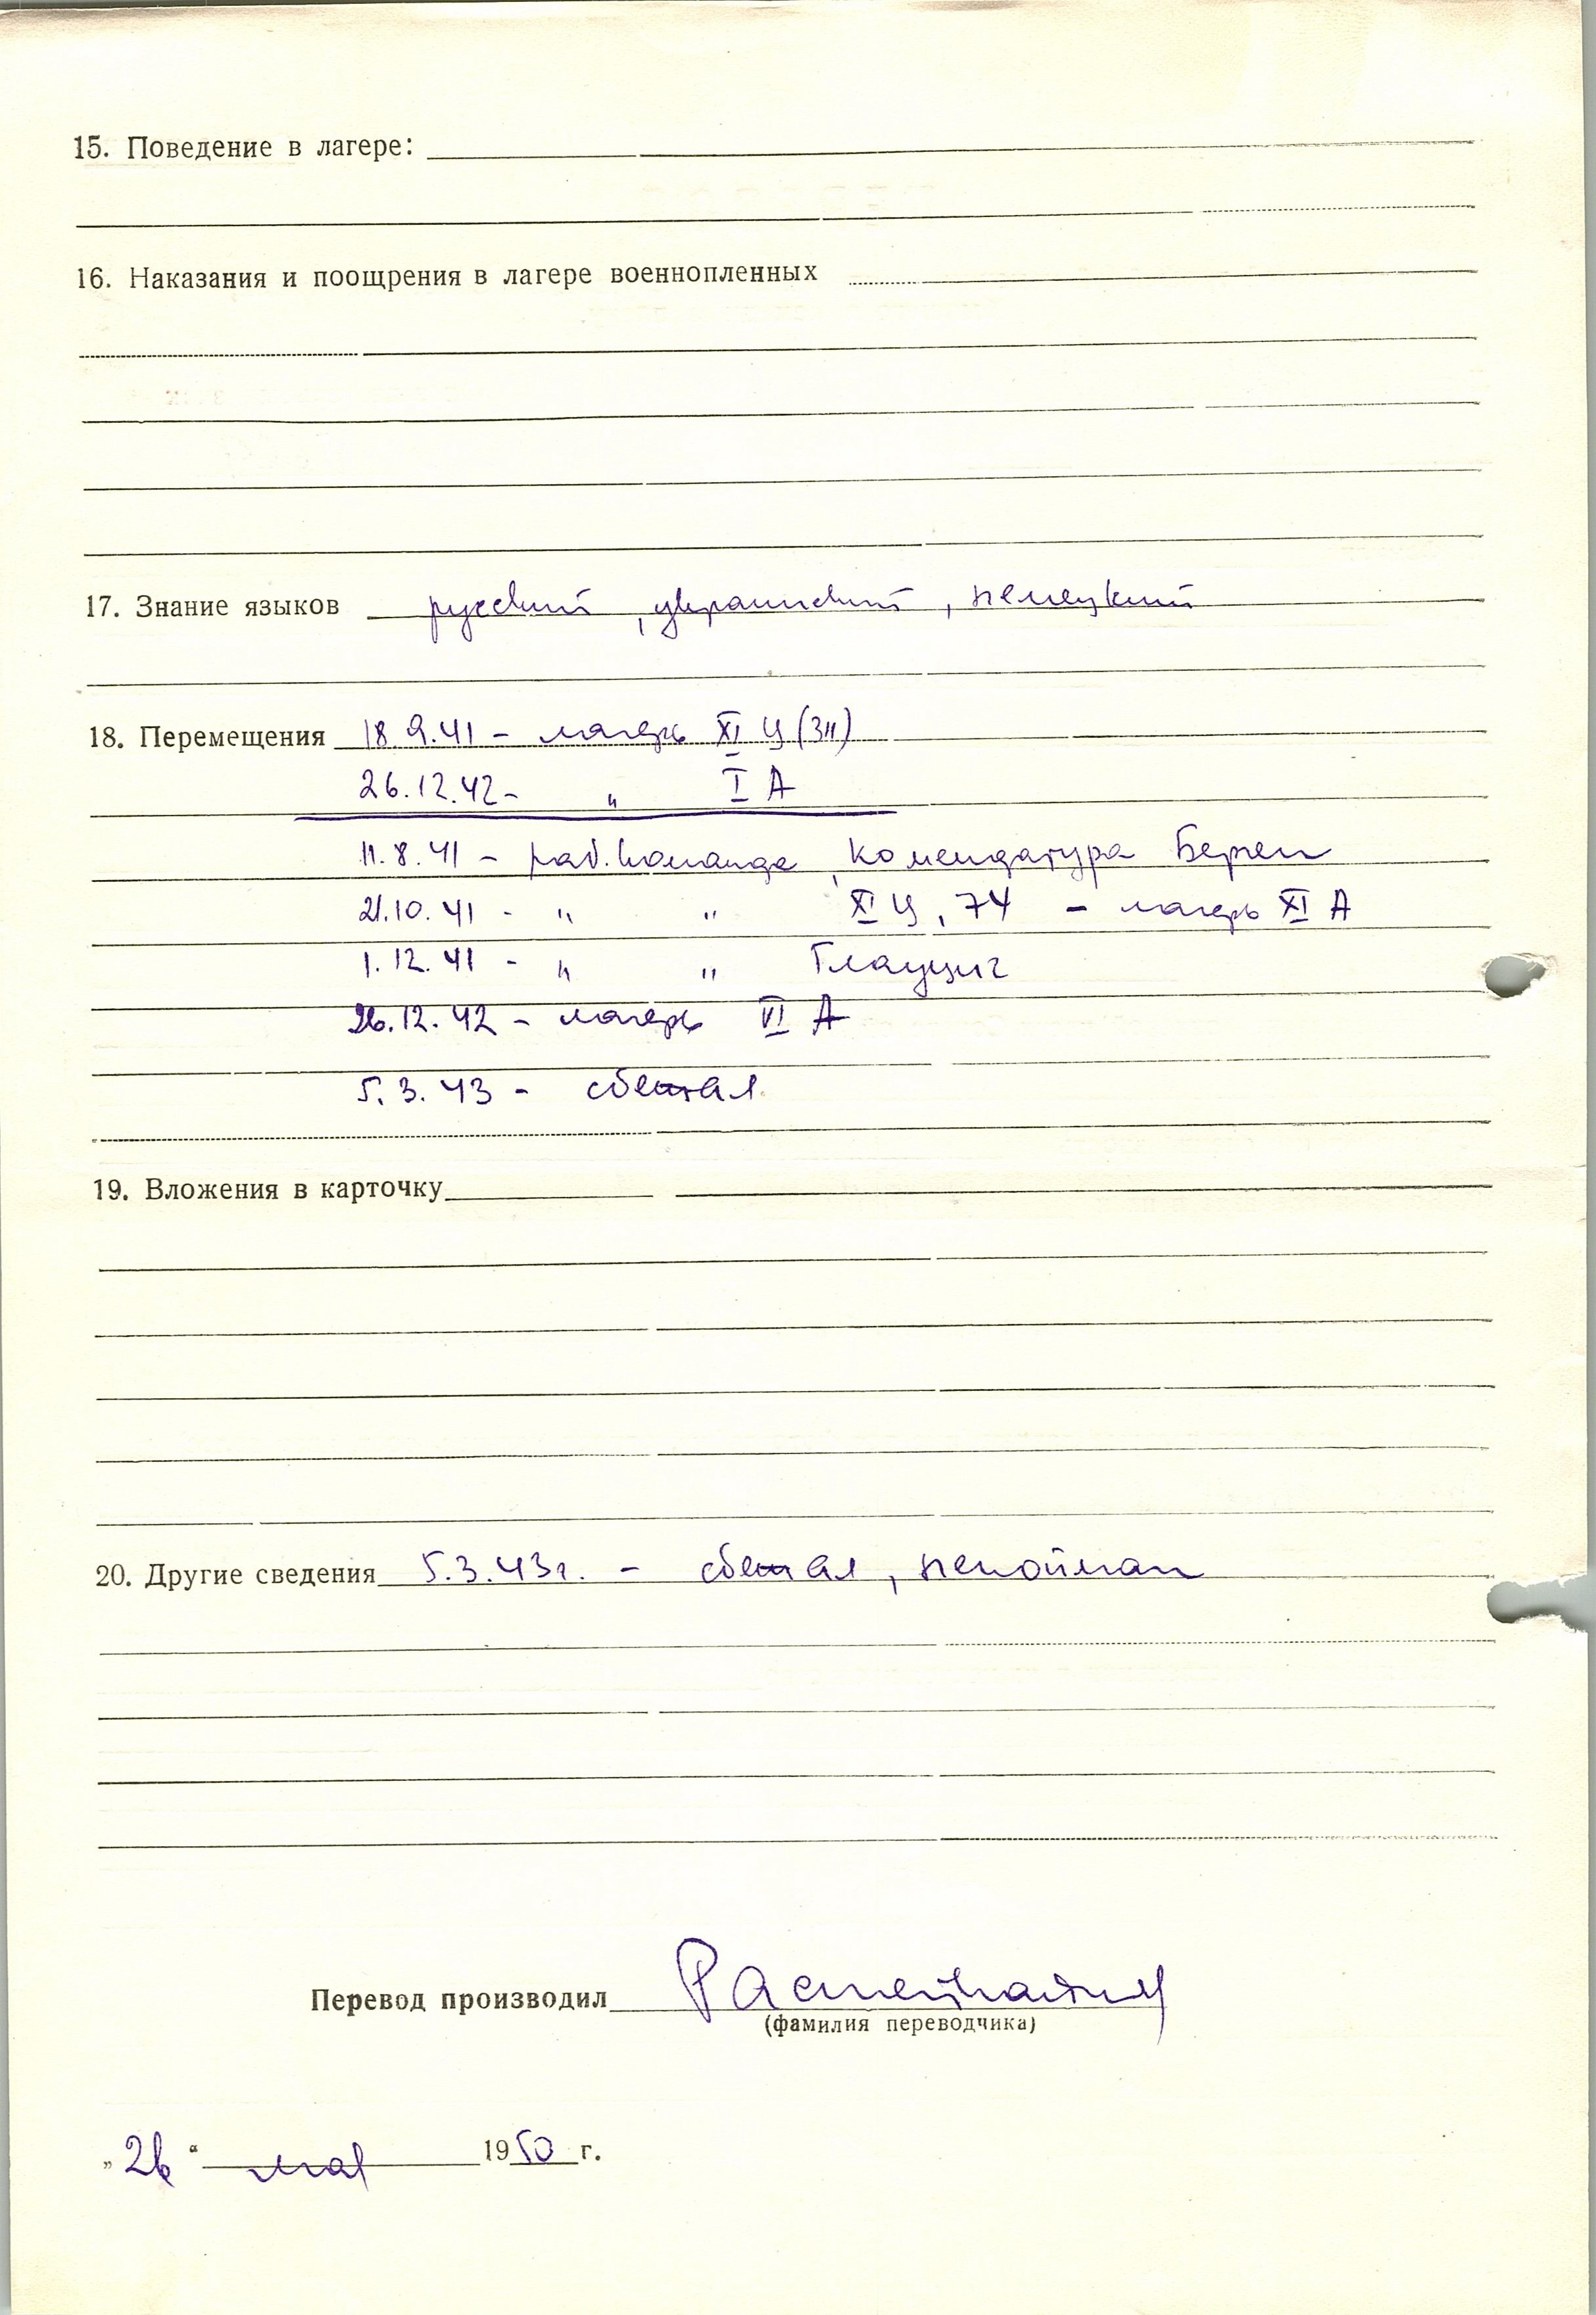 15. Поведение в лагере:
16. Наказания и поощрения в лагере военнопленных
17. Знание языков русский, украинский, немецкий
18. Перемещения 18.9.41 - лагерь XI Ц (311)
26.12.42 - " I А
11.8.41 - раб. команда, комендатура Берген
21.10.41 - " " XI Ц, 74 - лагерь XI А
1.12.41 - " " Глауциг
26.12.42 - лагерь VI А
5.3.43 - сбежал
19. Вложения в карточку
20. Другие сведения 5.3.43г. - сбежал, непойман
Перевод производил
(фамилия переводчика)
„26“ мая 1950 г.